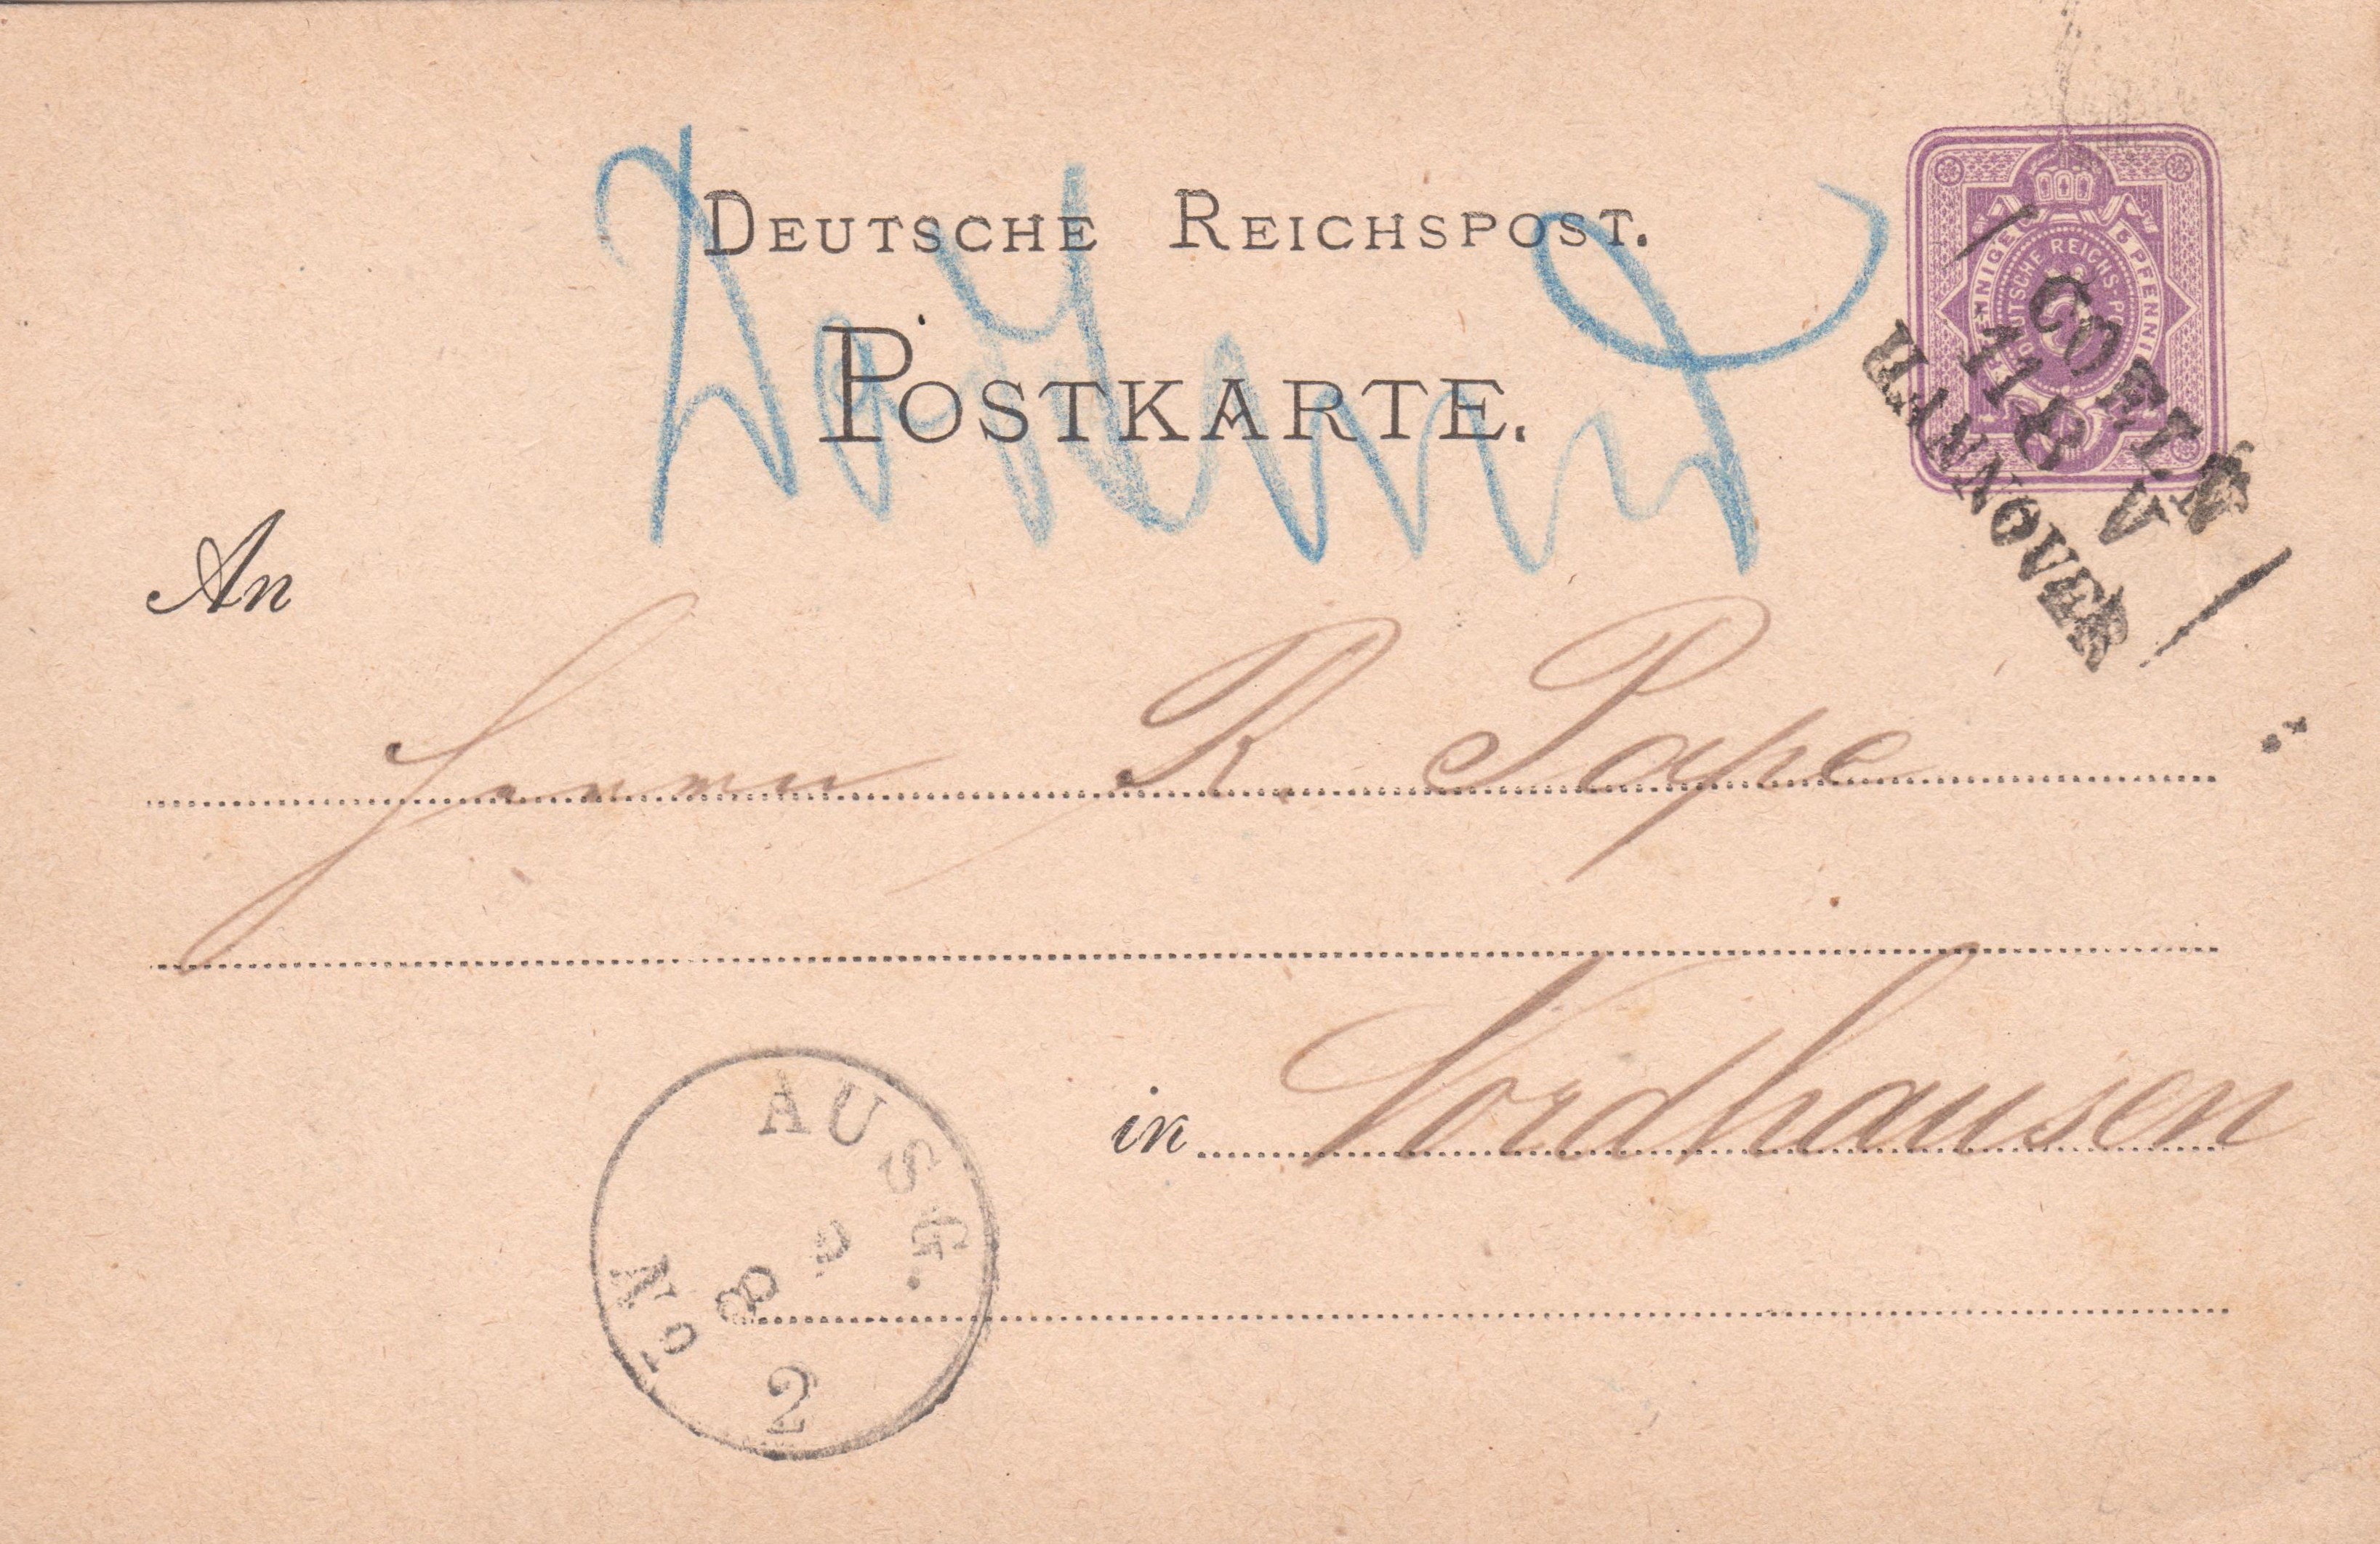 DEUTSCHE REICHSPOST.
POSTKARTE.
FÜNF PFENNIGE 5 PFENNIGE
DEUTSCHE REICHS-POST
COELN
11 8 V
HANNOVER
Dortmund
An
Herrn R. Pape
in Nordhausen
AUSG.
8
No 2